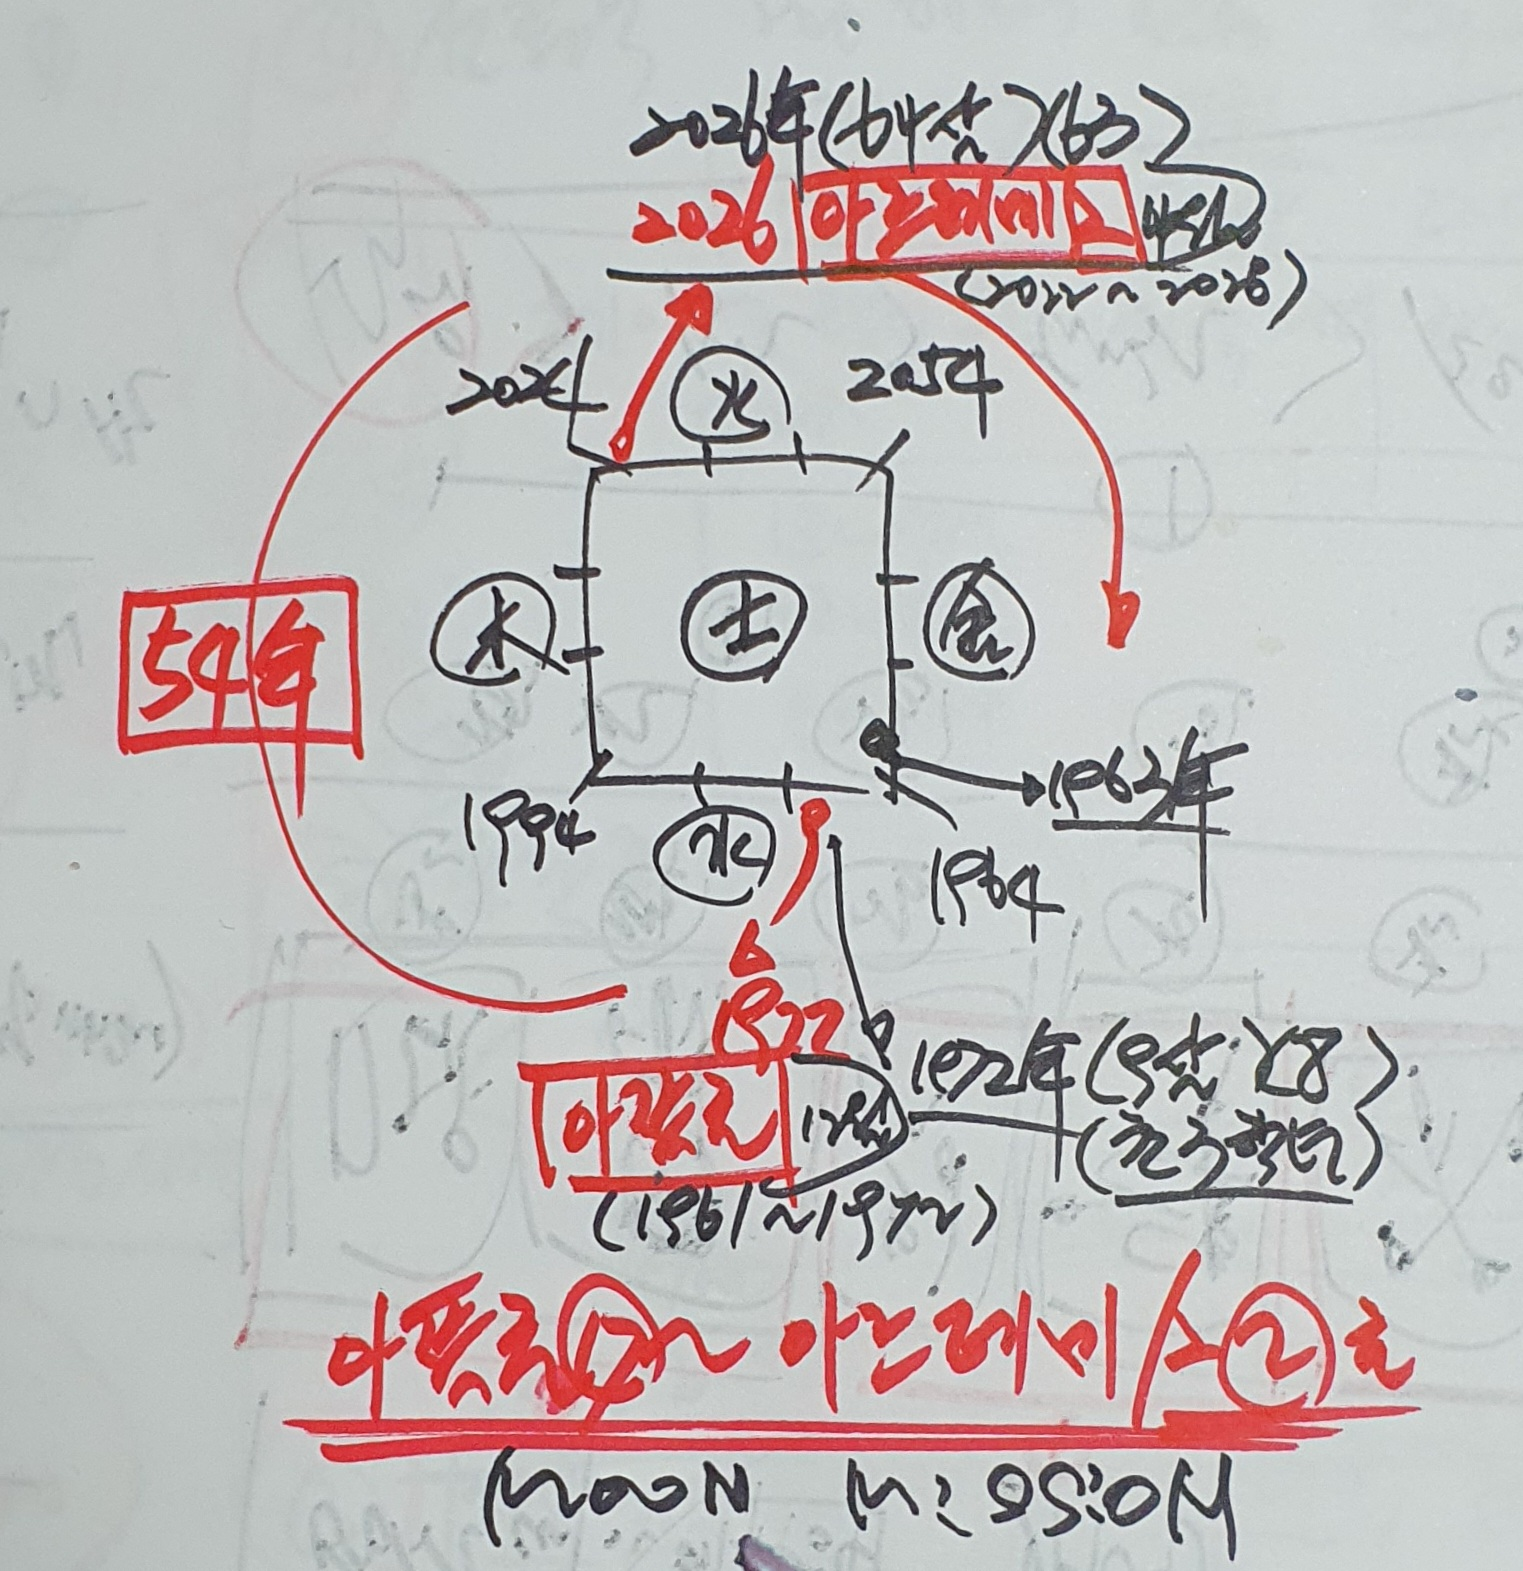 2026年(64살)(63)
2026 아르테미스 4명
(2022~2026)
2024
火
2054
木
土
金
54年
1963年
1994
水
1964
1972
1972年(9살)(8)
아폴로 12년
(초등학교)
(1961~1972)
아폴로 17 ~ 아르테미스 2호
MOON MISSION